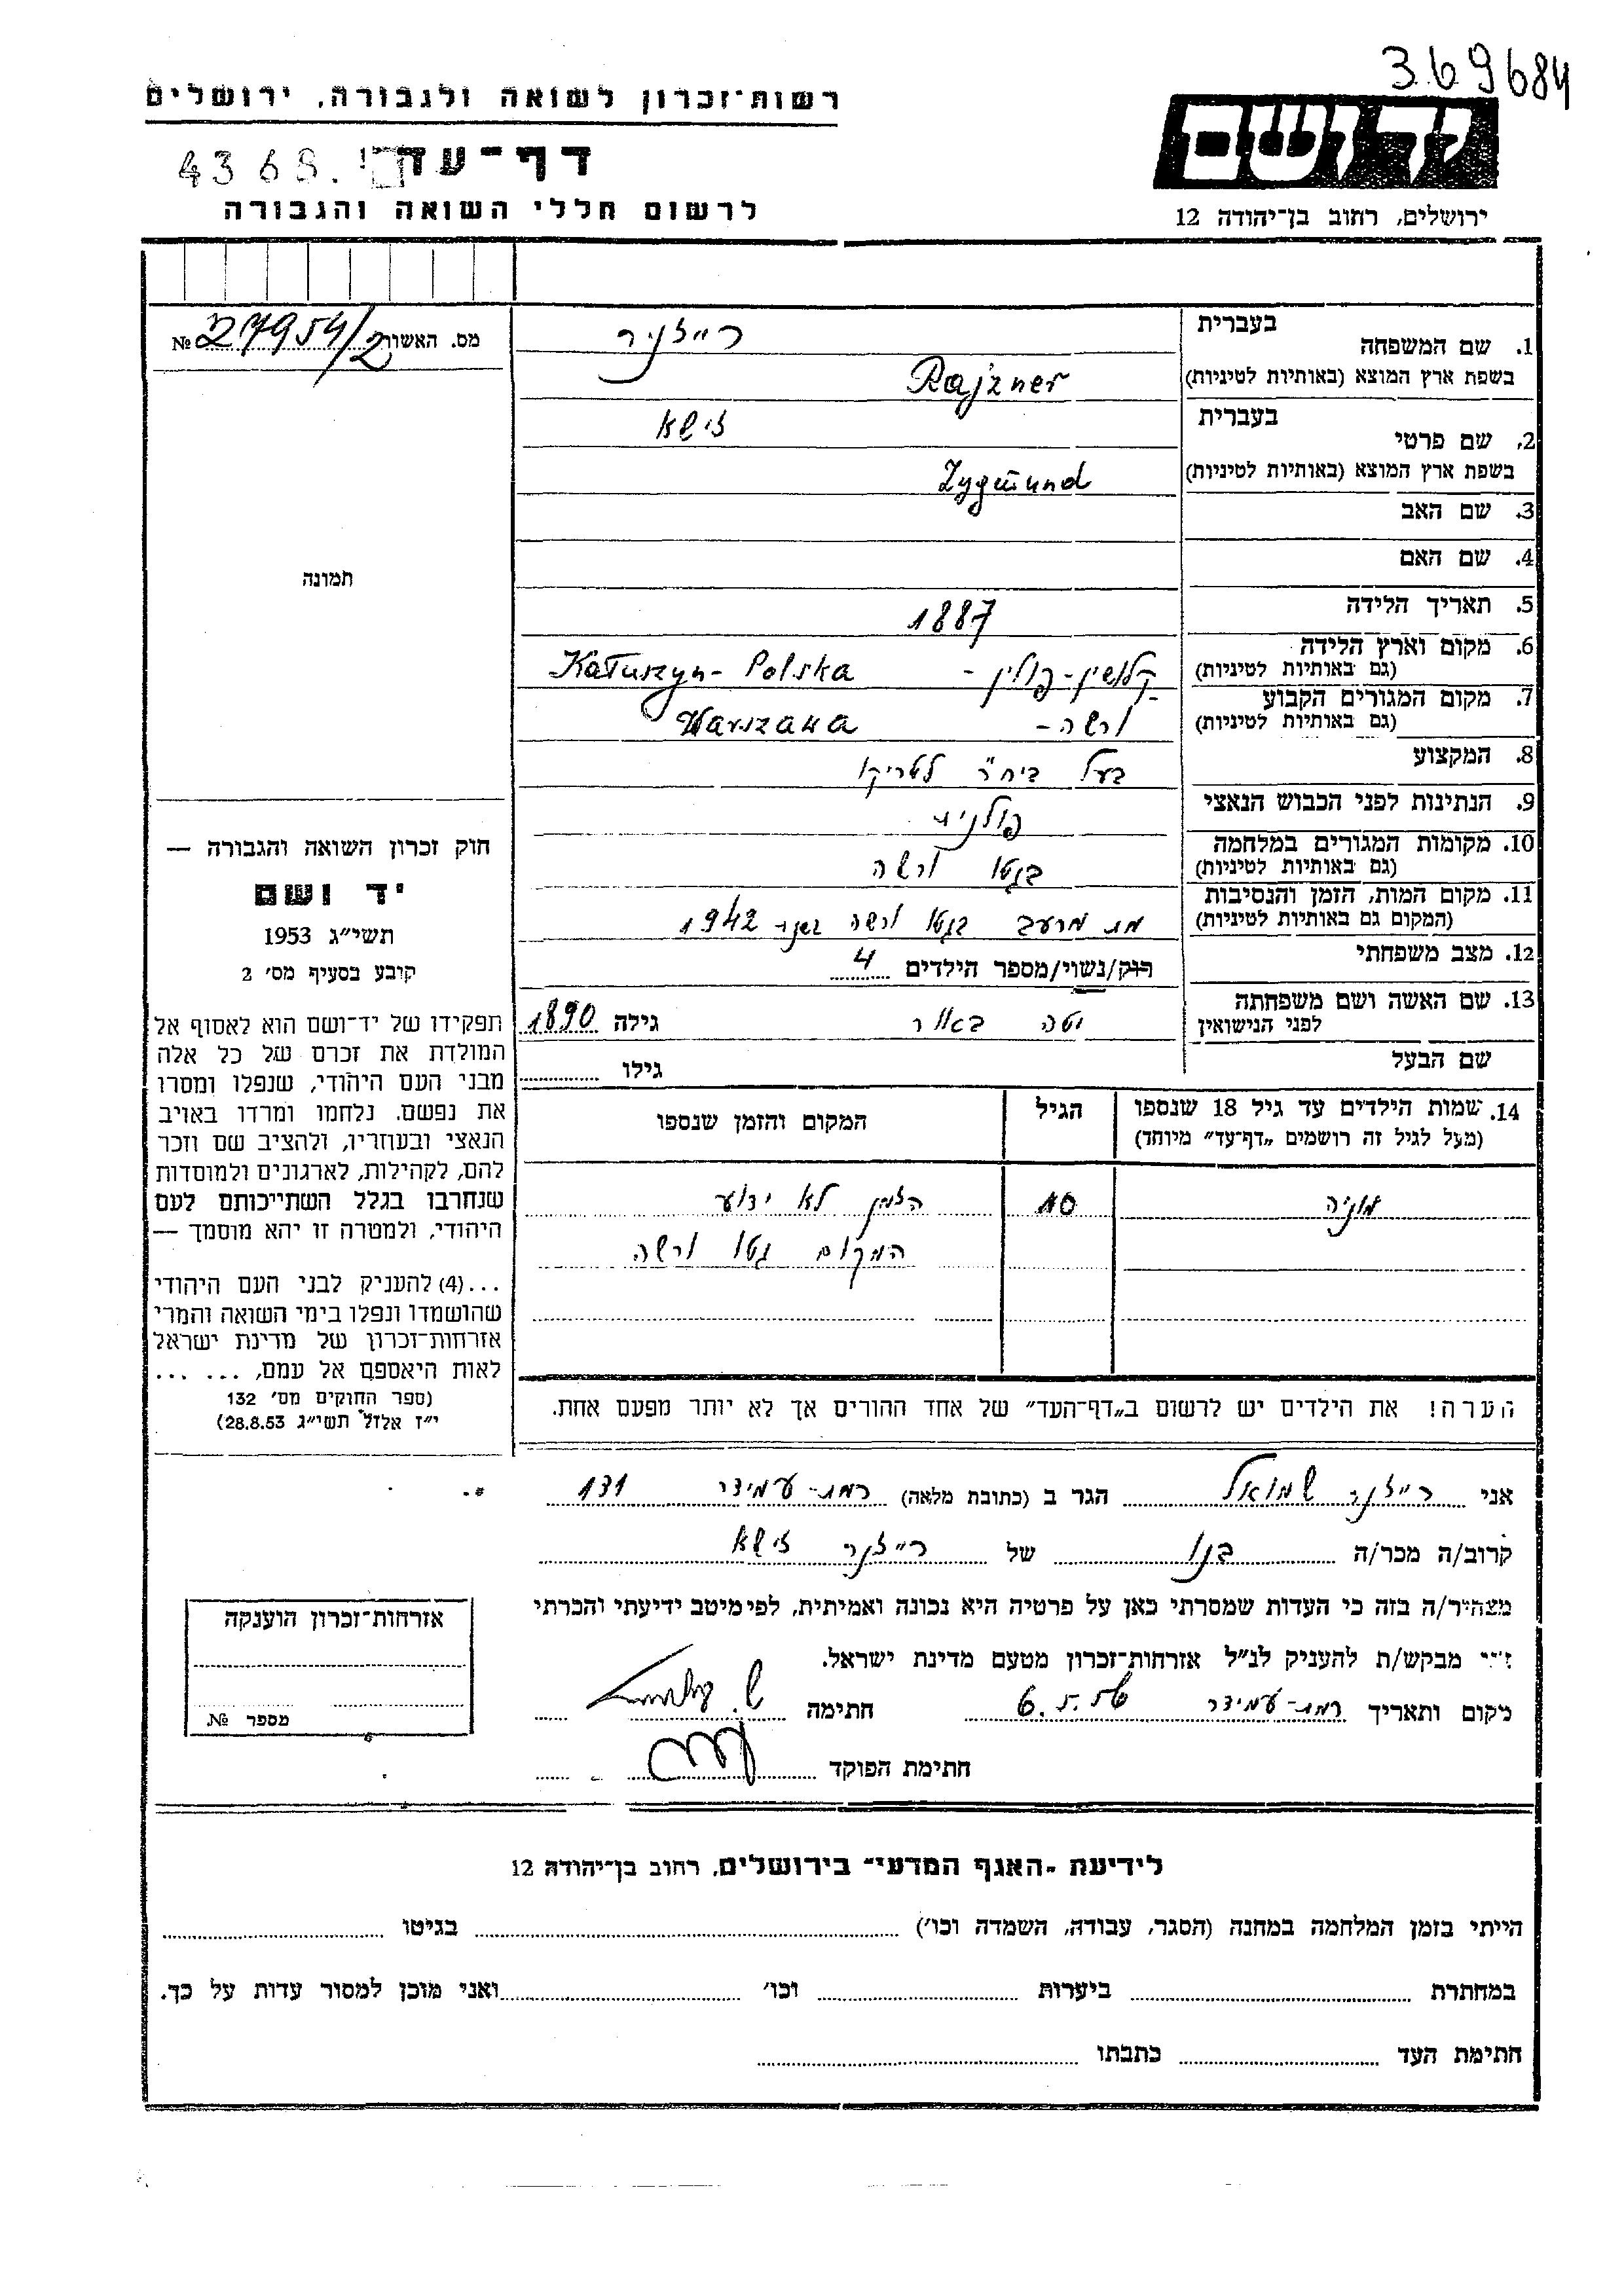 369684
רשות־זכרון לשואה ולגבורה, ירושלים
יד ושם
דף־עד
4368.
לרשום חללי השואה והגבורה
ירושלים, רחוב בן־יהודה 12
מס. האשור 27954/2 №
1. שם המשפחה
בעברית רייזניר
בשפת ארץ המוצא (באותיות לטיניות) Rajzner
2. שם פרטי
בעברית זישא
בשפת ארץ המוצא (באותיות לטיניות) Zygmund
3. שם האב
4. שם האם
5. תאריך הלידה 1887
6. מקום וארץ הלידה
(גם באותיות לטיניות) קלושין - פולין - Kałuszyn - Polska
7. מקום המגורים הקבוע
(גם באותיות לטיניות) ורשה - Warszawa
8. המקצוע בעל ביח"ר לטריקו
9. הנתינות לפני הכבוש הנאצי פולנית
10. מקומות המגורים במלחמה
(גם באותיות לטיניות) בגטו ורשה
11. מקום המות, הזמן והנסיבות
(המקום גם באותיות לטיניות) מת מרעב בגטו ורשה בשנת 1942
12. מצב משפחתי רוק/נשוי/מספר הילדים 4
13. שם האשה ושם משפחתה
לפני הנישואין יטה באואר גילה 1890
שם הבעל גילו
14. שמות הילדים עד גיל 18 שנספו
(מעל לגיל זה רושמים „דף־עד” מיוחד)
הגיל
המקום והזמן שנספו
מניה 10 הזמן לא ידוע
המקום גטו ורשה
הערה! את הילדים יש לרשום ב„דף־העד” של אחד ההורים אך לא יותר מפעם אחת.
תמונה
חוק זכרון השואה והגבורה —
יד ושם
תשי״ג 1953
קובע בסעיף מס׳ 2
תפקידו של יד־ושם הוא לאסוף אל
המולדת את זכרם של כל אלה
מבני העם היהודי, שנפלו ומסרו
את נפשם. נלחמו ומרדו באויב
הנאצי ובעוזריו, ולהציב שם וזכר
להם, לקהילות, לארגונים ולמוסדות
שנחרבו בגלל השתייכותם לעם
היהודי, ולמטרה זו יהא מוסמך —
...(4) להעניק לבני העם היהודי
שהושמדו ונפלו בימי השואה והמרי
אזרחות־זכרון של מדינת ישראל
לאות היאספם אל עמם, ... ...
(ספר החוקים מס׳ 132
י״ז אלול תשי״ג 28.8.53)
אני רייזנר שמואל הגר ב (כתובת מלאה) רמת-עמידר 131
קרוב/ה מכר/ה בנו של רייזנר זישא
מצהיר/ה בזה כי העדות שמסרתי כאן על פרטיה היא נכונה ואמיתית, לפי מיטב ידיעתי והכרתי
מבקש/ת להעניק לנ״ל אזרחות־זכרון מטעם מדינת ישראל.
מקום ותאריך רמת-עמידר 6.5.56 חתימה
חתימת הפוקד
אזרחות־זכרון הוענקה
מספר №
לידיעת "האגף המדעי" בירושלים, רחוב בן־יהודה 12
הייתי בזמן המלחמה במחנה (הסגר, עבודה, השמדה וכו׳) בגיטו
במחתרת ביערות וכו׳ ואני מוכן למסור עדות על כך.
חתימת העד כתבתו